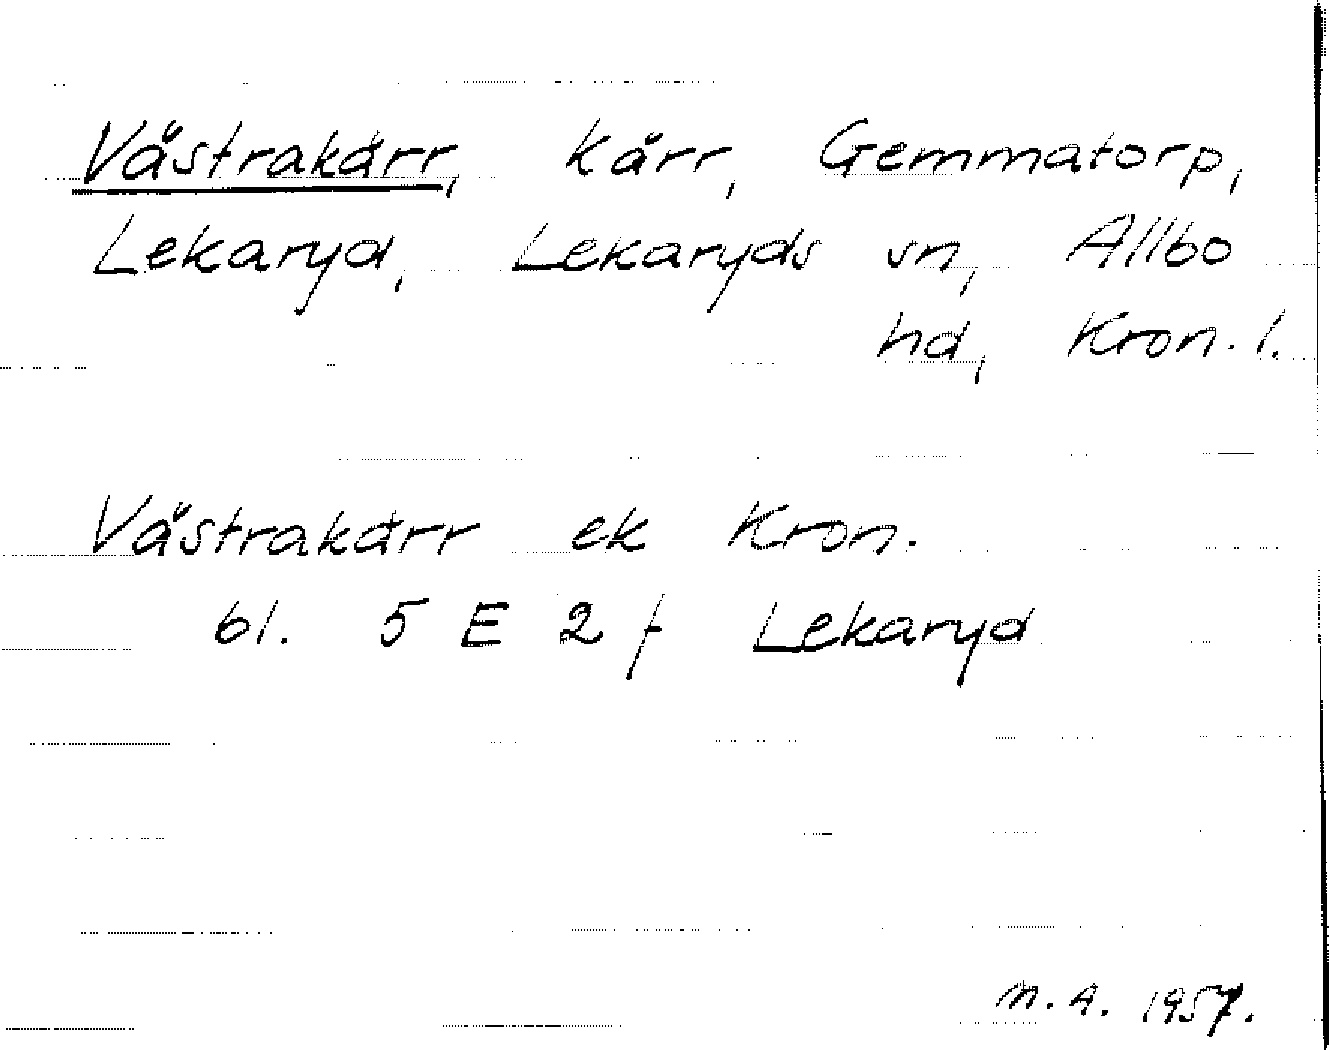 Västrakärr, kärr, Gemmatorp,
Lekaryd, Lekaryds sn, Allbo
hd, Kron. l.
Västrakärr ek Kron.
bl. 5 E 2 f Lekaryd
M. A. 1957.